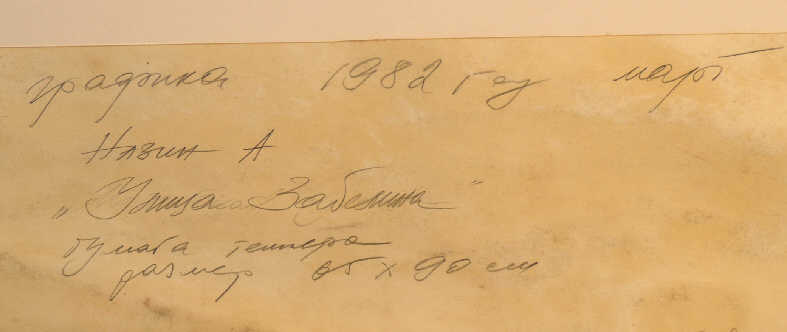 графика 1982 год март
Нязин А
„Улица Забелина"
бумага темпера
размер 65 х 90 см